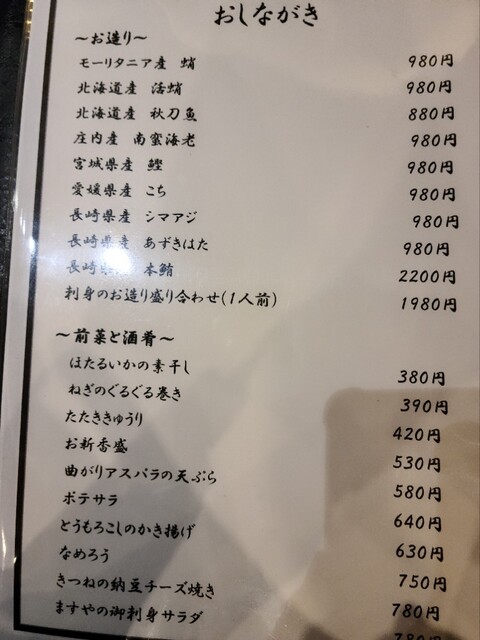 おしながき
～お造り～
モーリタニア産 蛸 980円
北海道産 活蛸 980円
北海道産 秋刀魚 880円
庄内産 南蛮海老 980円
宮城県産 鰹 980円
愛媛県産 こち 980円
長崎県産 シマアジ 980円
長崎県産 あずきはた 980円
長崎 本鮪 2200円
刺身のお造り盛り合わせ(1人前) 1980円
～前菜と酒肴～
ほたるいかの素干し 380円
ねぎのぐるぐる巻き 390円
たたききゅうり 420円
お新香盛 530円
曲がりアスパラの天ぷら 580円
ポテサラ 640円
とうもろこしのかき揚げ 630円
なめろう 750円
きつねの納豆チーズ焼き 780円
ますやの御刺身サラダ